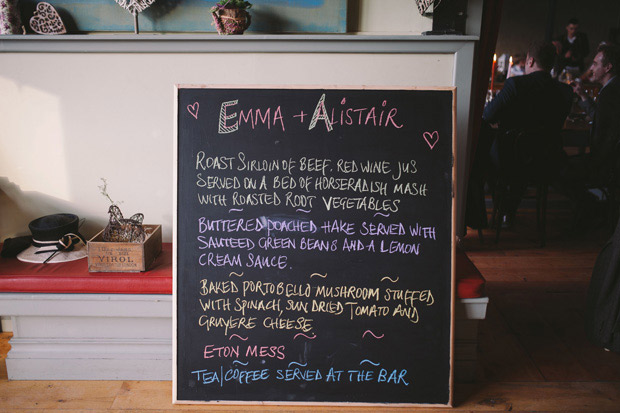 EMMA + ALISTAIR
ROAST SIRLOIN OF BEEF. RED WINE JUS
SERVED ON A BED OF HORSERADISH MASH
WITH ROASTED ROOT VEGETABLES
BUTTERED POACHED HAKE SERVED WITH
SAUTEED GREEN BEANS AND A LEMON
CREAM SAUCE.
BAKED PORTOBELLO MUSHROOM STUFFED
WITH SPINACH, SUN DRIED TOMATO AND
GRUYERE CHEESE.
ETON MESS
TEA/COFFEE SERVED AT THE BAR
VIROL